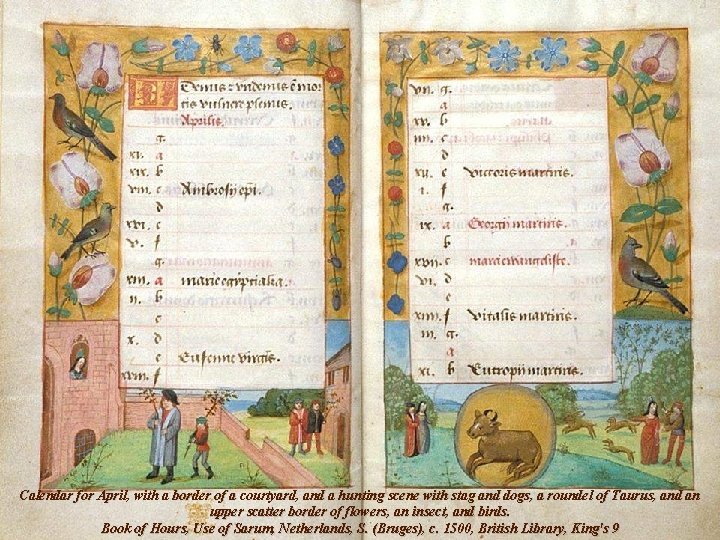 Denus z undenus e mor
tis vulnere plenus.
Aprilis.
g.
xi. a
xix. b
viii. c Ambrosii epi.
d
xvi. e
v. f
g.
xiii. a marie egiptiatia.
ii. b
c
x. d
e Eufemie virgis.
xviii. f
vii. g.
a
xv. b
iiii. c
d
xii. e Victoris martiris.
i. f
g.
ix. a Georgii martiris.
b
xvii. c marci evangeliste.
vi. d
e
xiiii. f Vitalis martiris.
iii. g.
a
xi. b Eutropii martiris.
Calendar for April, with a border of a courtyard, and a hunting scene with stag and dogs, a roundel of Taurus, and an
upper scatter border of flowers, an insect, and birds.
Book of Hours, Use of Sarum, Netherlands, S. (Bruges), c. 1500, British Library, King's 9